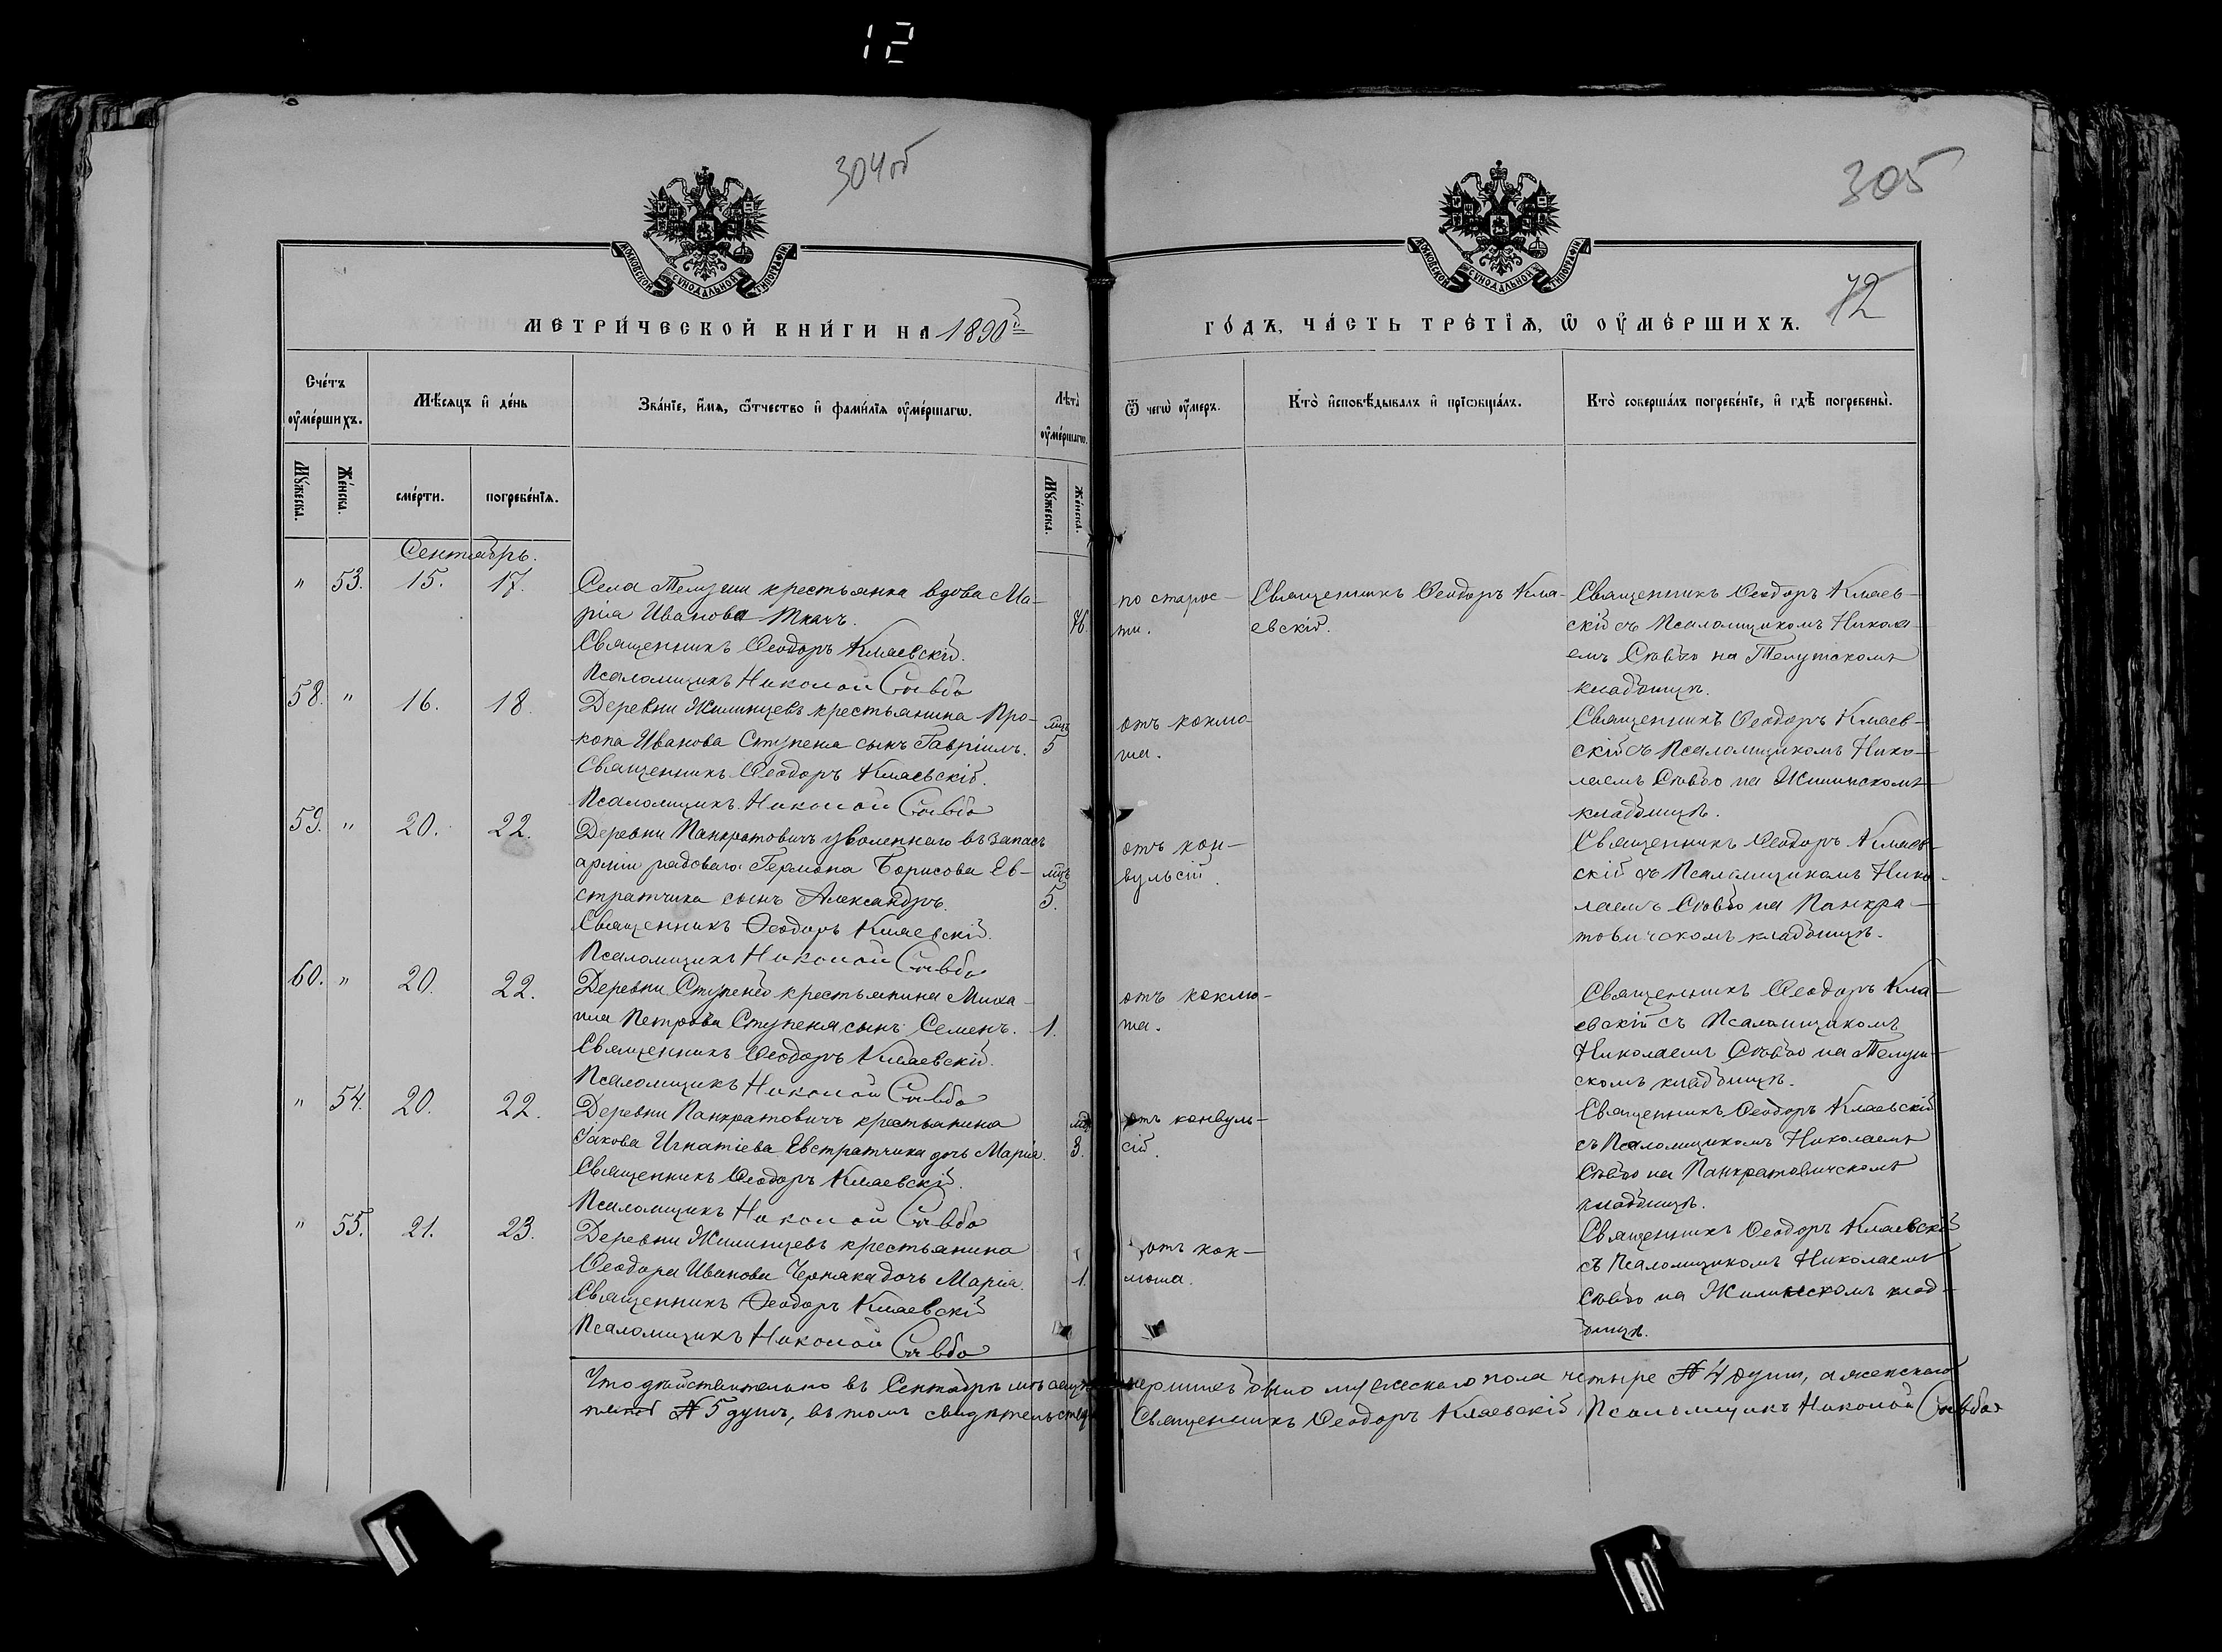 12
304об
305
72
МОСКОВСКОЙ СѴНОДАЛЬНОЙ ТИПОГРАФІИ
МОСКОВСКОЙ СѴНОДАЛЬНОЙ ТИПОГРАФІИ
МЕТРИ́ЧЕСКОЙ КНИ́ГИ НА 1890й
ГО́ДЪ, ЧА́СТЬ ТРЕ́ТІѦ, Ѡ ОУ҆МЕ́РШИХЪ.
Сче́тъ оу҆ме́ршихъ.
Мѣ́сяцъ и҆ де́нь
Зва́нїе, и҆́мѧ, ѻ҆́тчество и҆ фами́лїѧ оу҆ме́ршагѡ.
Лѣ́та оу҆ме́ршагѡ.
Ѿ чегѡ̀ оу҆́меръ.
Кто̀ и҆сповѣ́дывалъ и҆ прїѡбща́лъ.
Кто̀ соверша́лъ погребе́нїе, и҆ гдѣ̀ погребены̀.
Мꙋ́жеска.
Же́нска.
сме́рти.
погребе́нїѧ.
Мꙋ́жеска.
Же́нска.
Сентябрь.
" 53. 15. 17.
Села Телуши крестьянка вдова Ма-
рія Иванова Ткачъ.
Священникъ Ѳеодоръ Клаевскій.
Псаломщикъ Николай Савба
76.
по старос-
ти.
Священникъ Ѳеодоръ Кла-
евскій.
Священникъ Ѳеодоръ Клаев-
скій съ Псаломщикомъ Никола-
емъ на Телушскомъ
кладбищѣ.
58. " 16. 18.
Деревни Жилинцевъ крестьянина Про-
копа Иванова Ступеня сынъ Гавріилъ.
Священникъ Ѳеодоръ Клаевскій.
Псаломщикъ Николай Савба
мцъ
5
отъ коклю
ша.
Священникъ Ѳеодоръ Клаев-
скій съ Псаломщикомъ Нико-
лаемъ на Жилинскомъ
кладбищѣ.
59. " 20. 22.
Деревни Панкратовичъ уволеннаго въ запасъ
арміи рядоваго Германа Борисова Ев-
стратчика сынъ Александръ.
Священникъ Ѳеодоръ Клаевскій.
Псаломщикъ Николай Савба
мцъ
5.
отъ кон-
вульсій.
Священникъ Ѳеодоръ Клаев-
скій съ Псаломщикомъ Нико-
лаемъ на Панкра-
товичскомъ кладбищѣ.
60. " 20. 22.
Деревни Ступеней крестьянина Миха-
ила Петрова Ступеня сынъ Семенъ.
Священникъ Ѳеодоръ Клаевскій.
Псаломщикъ Николай Савба
1.
отъ коклю-
ша.
Священникъ Ѳеодоръ Кла-
евскій съ Псаломщикомъ
Николаемъ на Телуш-
скомъ кладбищѣ.
" 54. 20. 22.
Деревни Панкратовичъ крестьянина
Іакова Игнатіева Евстратчика дочь Марія.
Священникъ Ѳеодоръ Клаевскій.
Псаломщикъ Николай Савба
3.
отъ конвуль-
сій.
Священникъ Ѳеодоръ Клаевскій
съ Псаломщикомъ Николаемъ
на Панкратовичскомъ
кладбищѣ.
" 55. 21. 23.
Деревни Жилинцевъ крестьянина
Ѳеодора Иванова Черняка дочь Марія.
Священникъ Ѳеодоръ Клаевскій
Псаломщикъ Николай Савба
1.
отъ кок-
люша.
Священникъ Ѳеодоръ Клаевскій
съ Псаломщикомъ Николаемъ
на Жилинскомъ клад-
бищѣ.
Что дѣйствительно въ Сентябрѣ м-цѣ умершихъ было мужескаго пола четыре № 4 душъ, а женскаго
№ 5 душъ, въ томъ свидѣтельствуемъ Священникъ Ѳеодоръ Клаевскій Псаломщикъ Николай Савба